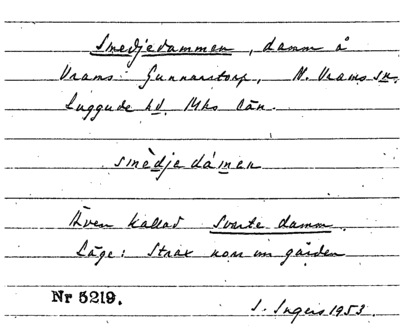 Smedjedammen, damm å
Vrams Gunnarstorp, N. Vrams sn.
Luggude hd. Mhs län.
smèdjedámen
Även kallad Svarte damm.
Läge: Strax norr om gården
Nr 5219.
I. Ingers 1953.